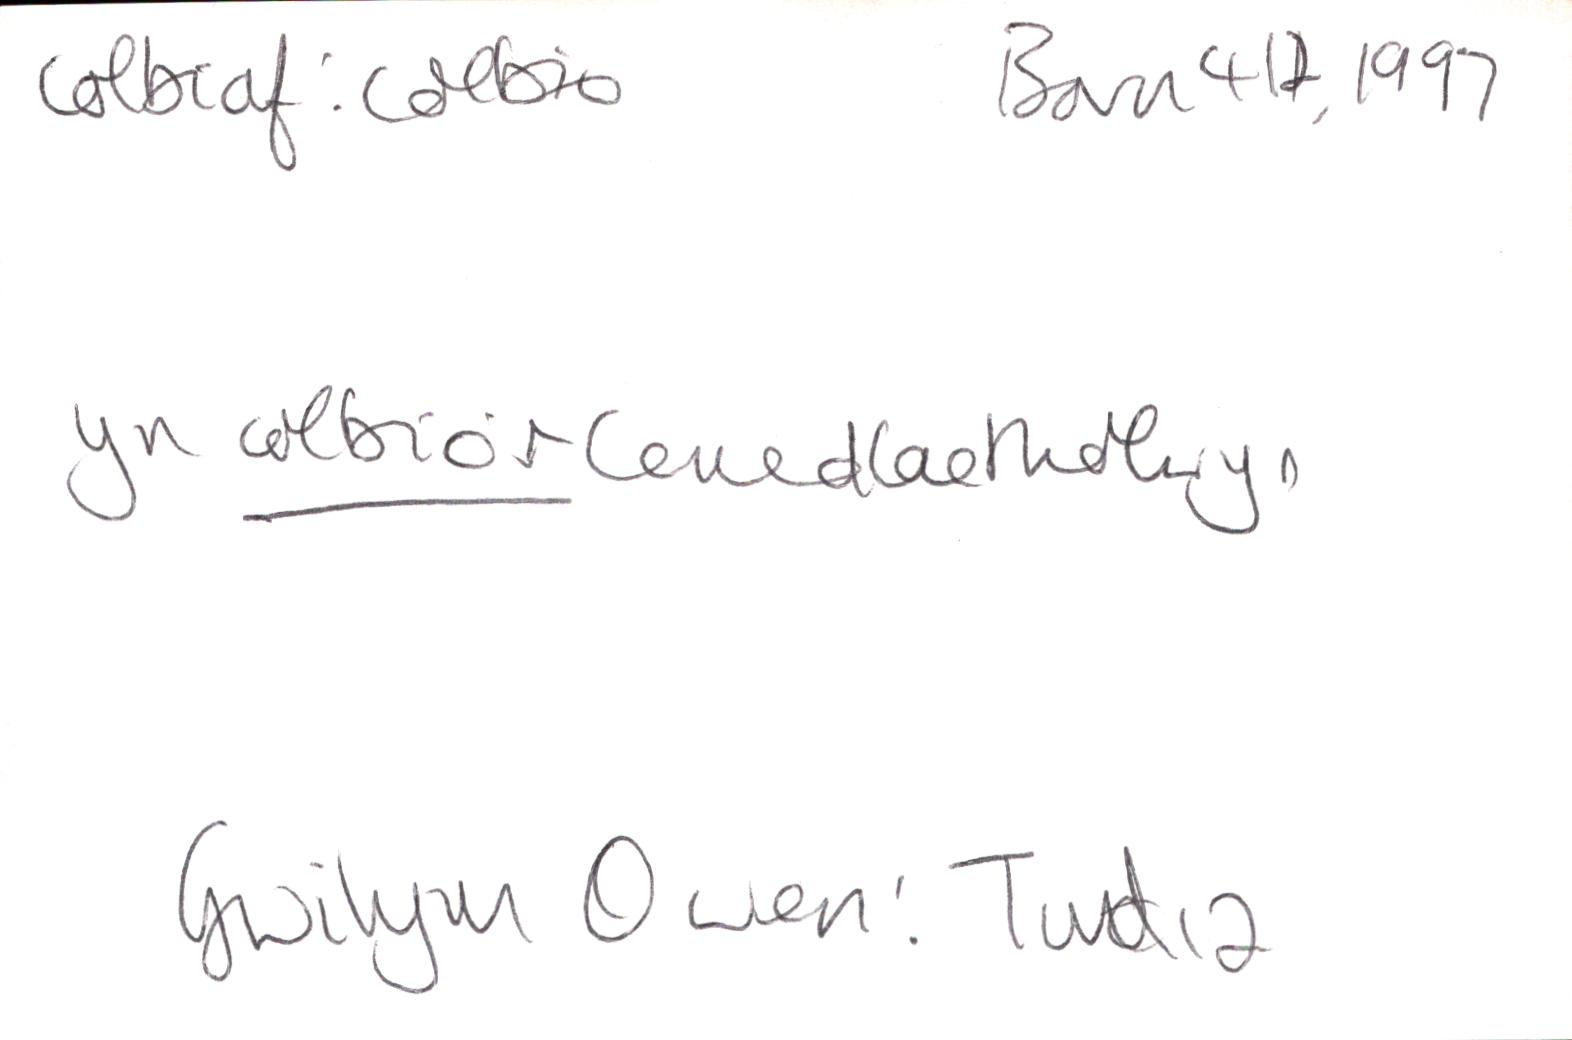 colbiaf: colbio Barn 412, 1997
yn colbio'r Cenedlaetholwyr
Gwilym Owen: Tud 12